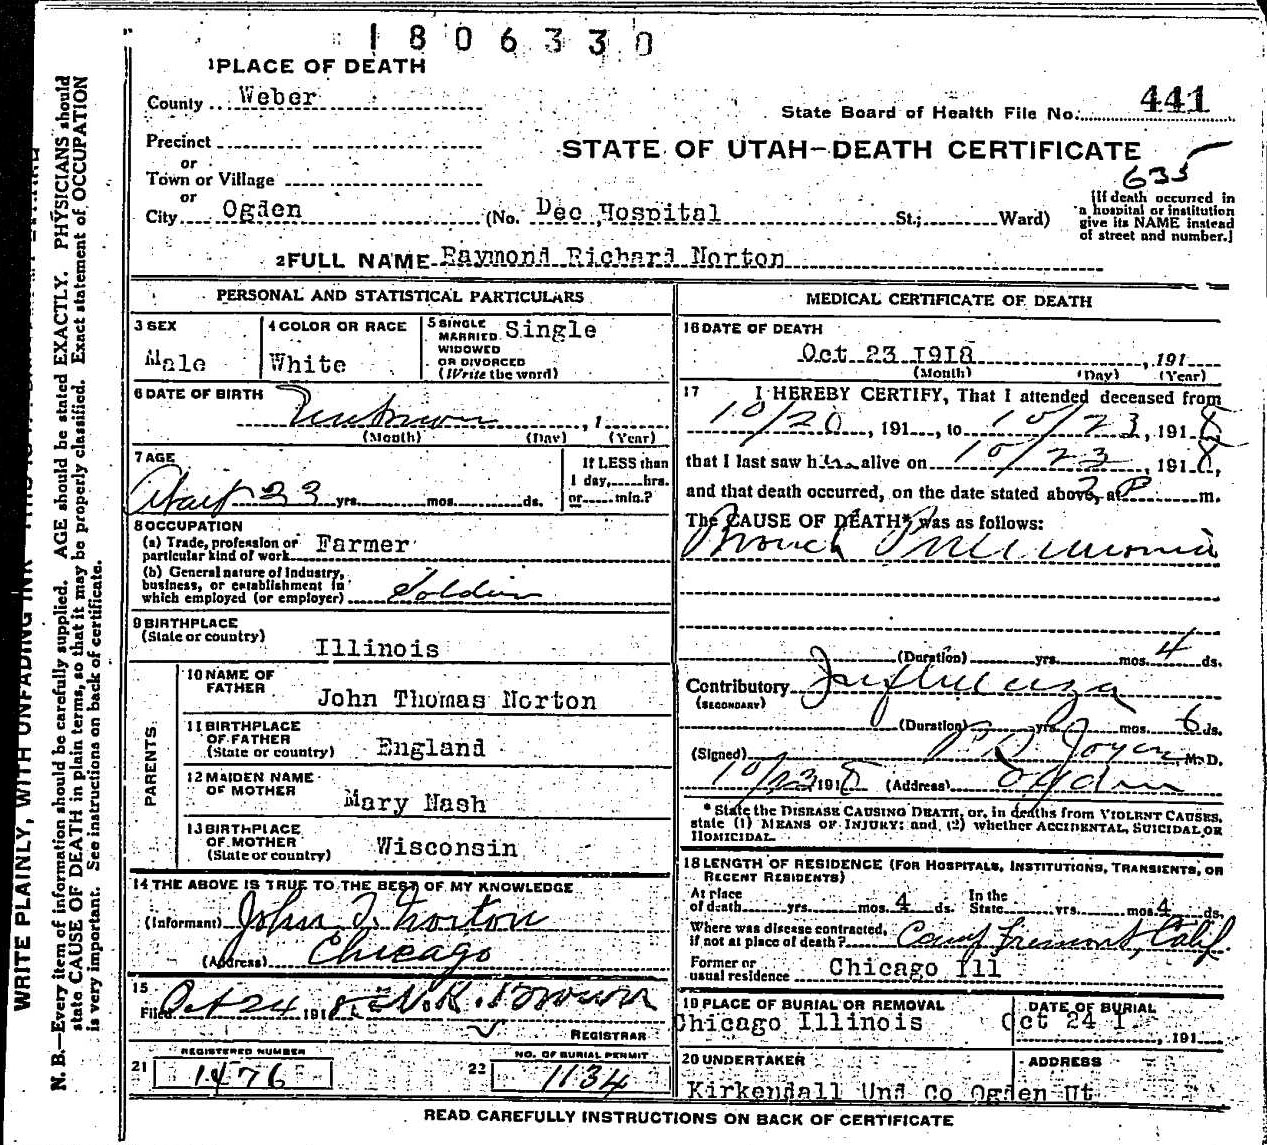 1806330
1 PLACE OF DEATH
County Weber
State Board of Health File No. 441
Precinct
or
STATE OF UTAH—DEATH CERTIFICATE
635
Town or Village
or
City Ogden (No. Dee Hospital St.; Ward)
[If death occurred in
a hospital or institution
give its NAME instead
of street and number.]
2 FULL NAME Raymond Richard Norton
PERSONAL AND STATISTICAL PARTICULARS
3 SEX
Male
4 COLOR OR RACE
White
5 SINGLE
MARRIED
WIDOWED
OR DIVORCED
(Write the word)
Single
6 DATE OF BIRTH
Unknown , 1
(Month) (Day) (Year)
7 AGE
About 23 yrs. mos. ds.
If LESS than
1 day, hrs.
or min.?
8 OCCUPATION
(a) Trade, profession or
particular kind of work Farmer
(b) General nature of industry,
business, or establishment in
which employed (or employer) Soldier
9 BIRTHPLACE
(State or country)
Illinois
PARENTS
10 NAME OF
FATHER
John Thomas Norton
11 BIRTHPLACE
OF FATHER
(State or country)
England
12 MAIDEN NAME
OF MOTHER
Mary Nash
13 BIRTHPLACE
OF MOTHER
(State or country)
Wisconsin
14 THE ABOVE IS TRUE TO THE BEST OF MY KNOWLEDGE
(Informant) John T. Norton
(Address) Chicago
15
Filed Oct 24 191 8
REGISTRAR
21 REGISTERED NUMBER
1476
22 NO. OF BURIAL PERMIT
1134
MEDICAL CERTIFICATE OF DEATH
16 DATE OF DEATH
Oct 23 1918 , 191
(Month) (Day) (Year)
17 I HEREBY CERTIFY, That I attended deceased from
10/20 , 191 , to 10/23 , 191 8
that I last saw him alive on 10/23 , 191 8,
and that death occurred, on the date stated above, at P m.
The CAUSE OF DEATH* was as follows:
Bronch Pneumonia
(Duration) yrs. mos. 4 ds.
Contributory Influenza
(SECONDARY)
(Duration) yrs. mos. 6 ds.
(Signed) Joyce, M. D.
10/23 191 8 (Address) Ogden
* State the DISEASE CAUSING DEATH, or, in deaths from VIOLENT CAUSES,
state (1) MEANS OF INJURY; and (2) whether ACCIDENTAL, SUICIDAL OR
HOMICIDAL.
18 LENGTH OF RESIDENCE (FOR HOSPITALS, INSTITUTIONS, TRANSIENTS, OR
RECENT RESIDENTS)
At place
of death yrs. mos. 4 ds.
In the
State yrs. mos. 4 ds.
Where was disease contracted,
if not at place of death? Camp Fremont, Calif.
Former or
usual residence Chicago Ill
19 PLACE OF BURIAL OR REMOVAL
Chicago Illinois
DATE OF BURIAL
Oct 24 1 , 191
20 UNDERTAKER
Kirkendall Und Co
ADDRESS
Ogden Ut
READ CAREFULLY INSTRUCTIONS ON BACK OF CERTIFICATE
WRITE PLAINLY, WITH UNFADING INK
N. B.—Every item of information should be carefully supplied. AGE should be stated EXACTLY. PHYSICIANS should
state CAUSE OF DEATH in plain terms, so that it may be properly classified. Exact statement of OCCUPATION
is very important. See instructions on back of certificate.